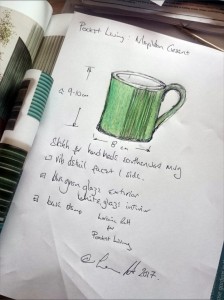 Pocket Living : Mapleton Crescent
↑
c. 9-10cm
↓
← 8 cm →
Sketch for handmade earthenware mug
w rib detail facet 1 side.
glaze exterior
white glaze interior
base stamp
for
Pocket Living
2017.